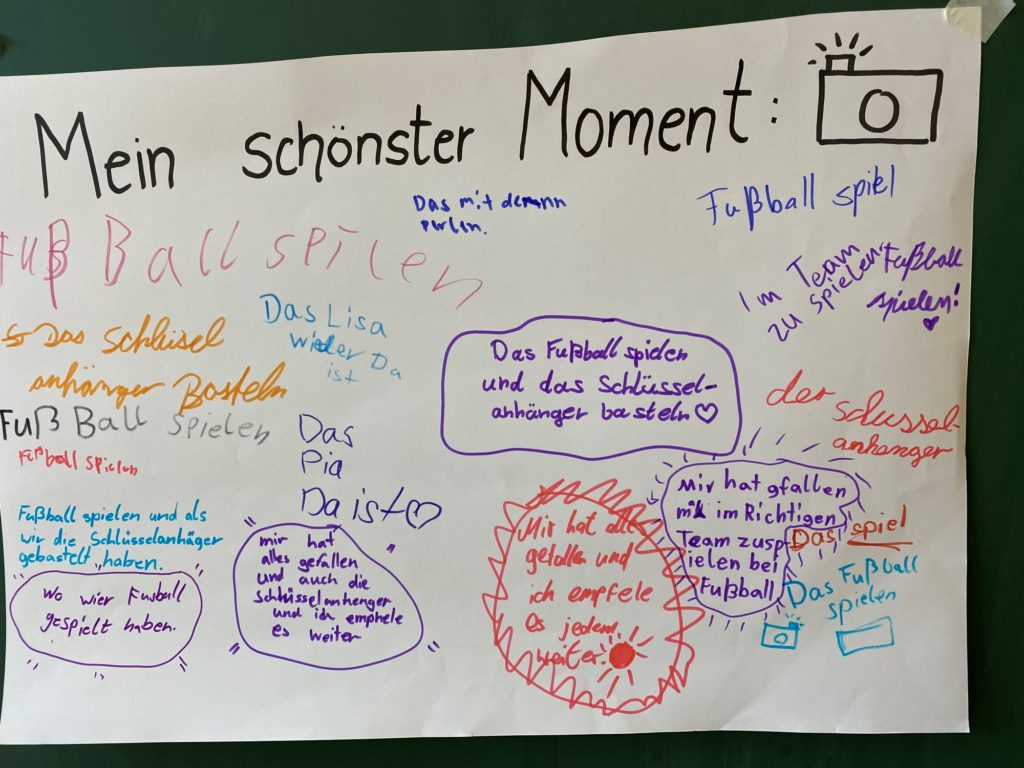 Mein schönster Moment:
Das mit den
perlen.
Fußball spiel
Fuß Ball spilen
Im Team
zu spielen
Fußball
spielen!
Das Schlüsel
anhänger Basteln
Das Lisa
wieder Da
ist
Das Fußball spielen
und das Schlüssel-
anhänger basteln
der Schussel-
anhenger
Fuß Ball spielen
Fußball spielen
Das
Pia
Da ist
Mir hat gfallen
im Richtigen
Team zusp
ielen bei
Fußball
Das spiel
Das Fußball
spielen
Fußball spielen und als
wir die Schlüsselanhäger
gebastelt haben.
wo wier Fusball
gespielt haben.
mir hat
alles gefallen
und auch die
Schlüsselanhenger
und ich emphele
es weiter
Mir hat alles
gefallen und
ich empfele
es jedem
weiter!